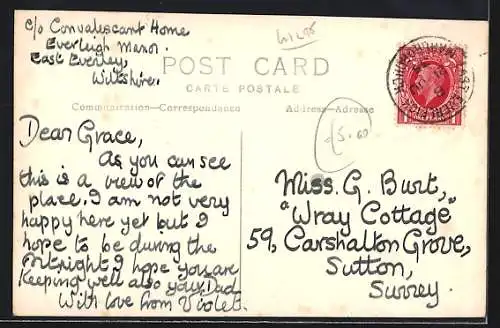 c/o Convalescant Home
Everleigh Manor.
East Everley,
Wiltshire.
POST CARD
CARTE POSTALE
Communication—Correspondence
Address—Adresse
£5.00
Dear Grace,
As you can see
this is a view of the
place, I am not very
happy here yet but I
hope to be during the
fortnight, I hope you are
Keeping well also your Dad
With love from Violet.
Miss. G. Burt,
"Wray Cottage"
59, Carshalton Grove,
Sutton,
Surrey.